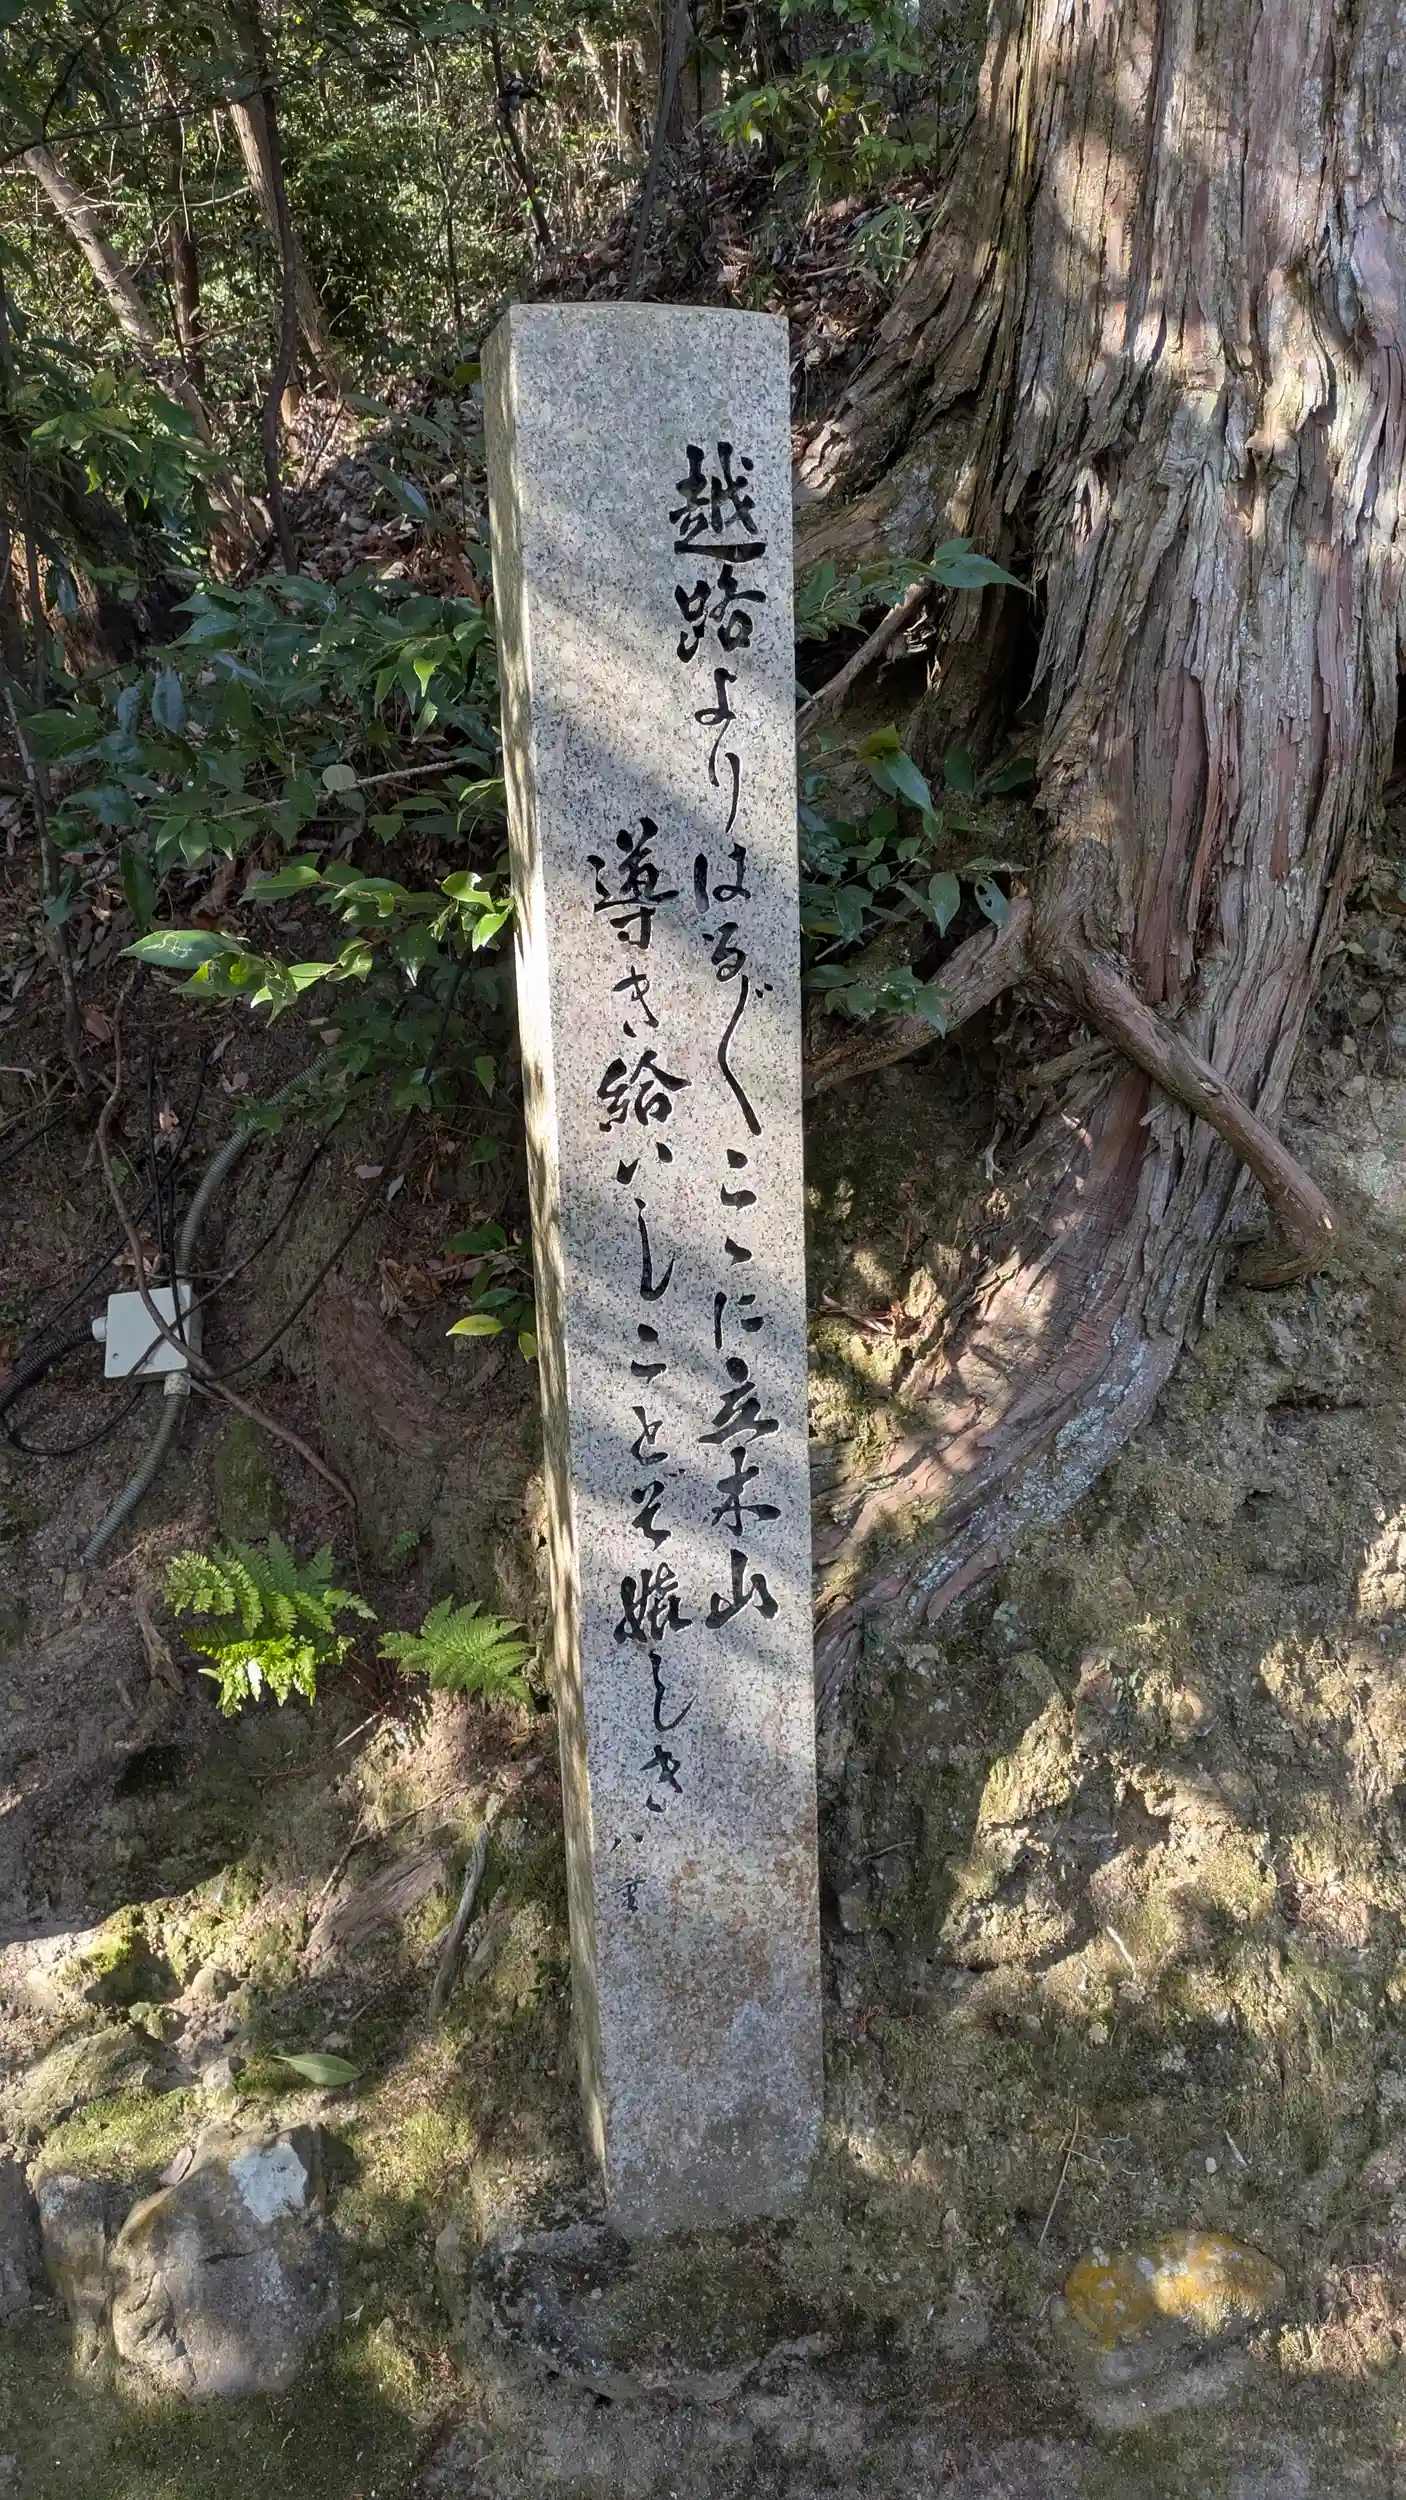 越路よりはるか〲こゝに立木山
導き給いしことぞ嬉しき
八重